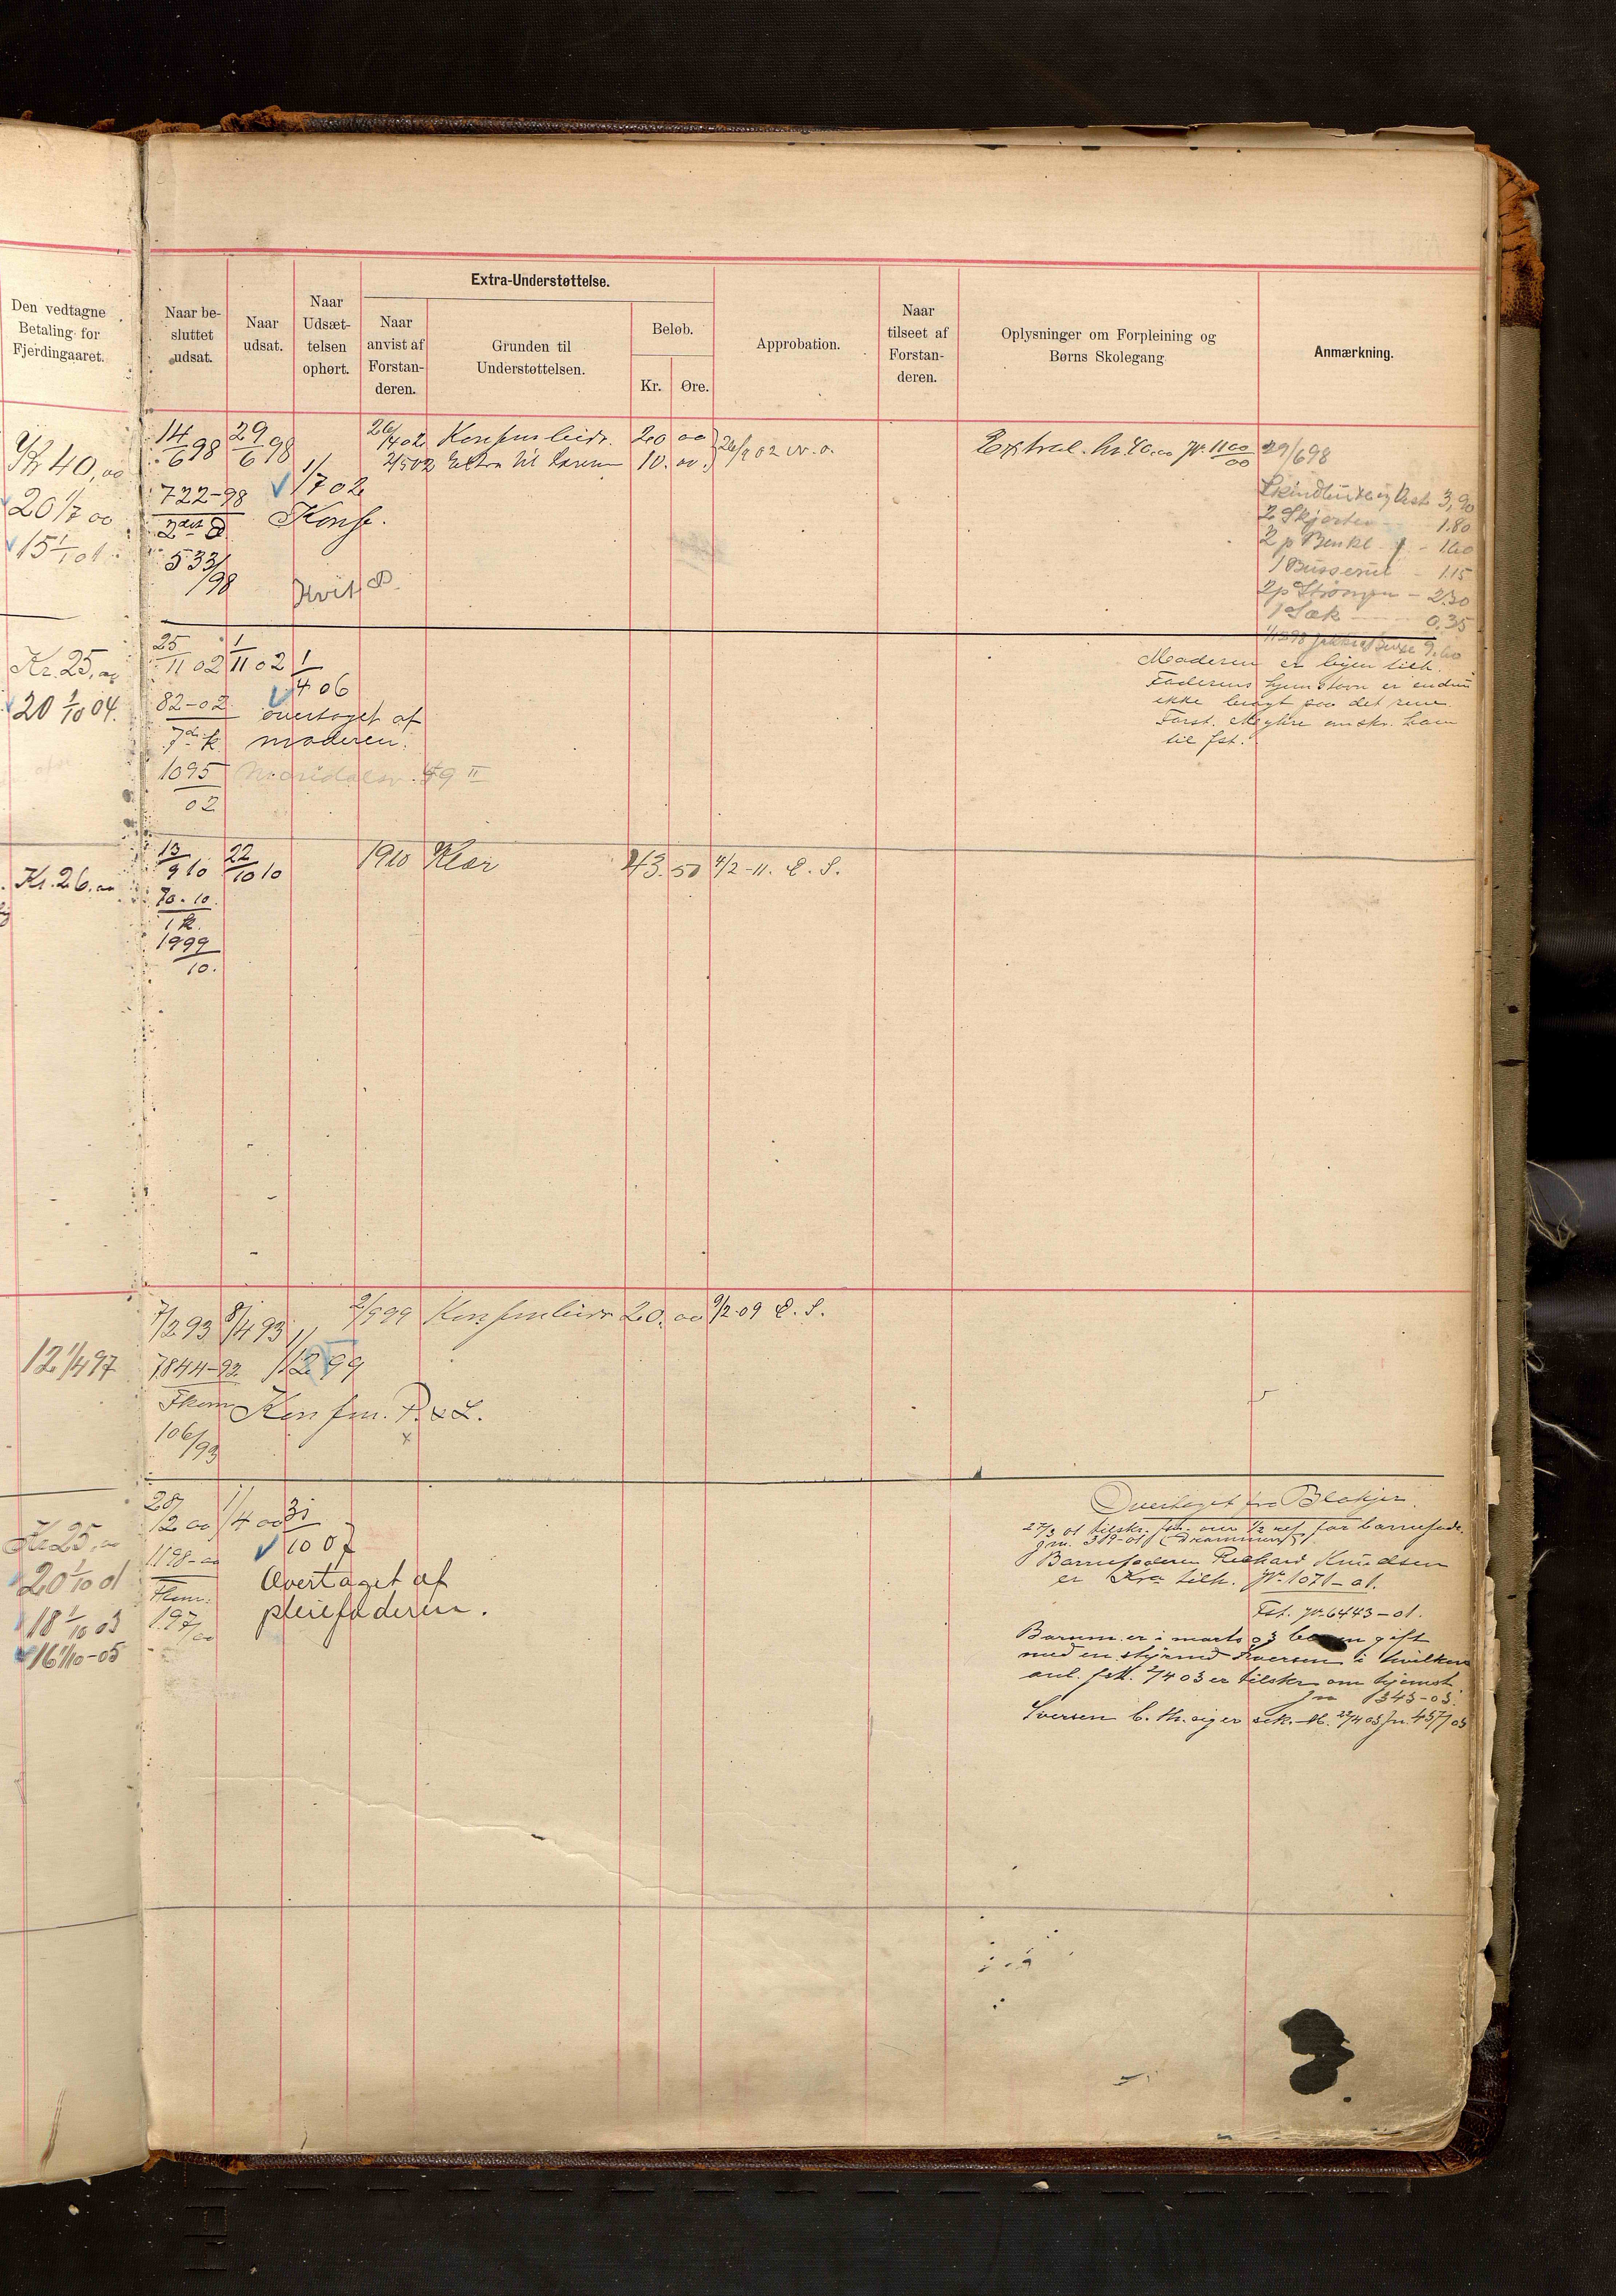 Den vedtagne
Betaling for
Fjerdingaaret.
Naar be-
sluttet
udsat.
Naar
udsat.
Naar
Udsæt-
telsen
ophørt.
Extra-Understøttelse.
Naar
anvist af
Forstan-
deren.
Grunden til
Understøttelsen.
Beløb.
Kr. Øre.
Approbation.
Naar
tilseet af
Forstan-
deren.
Oplysninger om Forpleining og
Børns Skolegang
Anmærkning.
Kr 40,00
20 1/7 00
15 1/1 01
14/6 98 29/6 98
722-98
533/98
1/7 02
Konf.
Kvit
26/4 02 Konfurbidr. 20 00
Extra til 10. 00.
Kr. 40,00 1100/00
29/6 98
3,90
2 Skjorter 1.80
2 p Benkl. - 1.60
1 Busserul - 1.15
2 p Strømper - 2.30
1 Sæk 0.35
Kr. 25,00
20 1/10 04.
25/11 02 1/11 02 1/4 06
82-02
overtaget af
moderen.
1095/02
Moderen er byen tilh.
Faderens hjemstavn er endnu
ikke bragt paa det rene.
til fst.
Kr. 26.00
13/9 10 22/10 10
70-10.
1 k.
1999/10.
1910 Klær 43. 50 4/2-11. E. S.
12 1/4 97
7/2 93 8/4 93
7844-92
106/93
1/12 99
Konfm.
2/9 99 20. 00 9/2-09 E. S.
Kr. 25,00
20 1/10 01
18 1/10 03
16 1/10-05
28/12 00 1/4 00 31/10 07
1198-00
197/00
Overtaget af
pleiefaderen.
Overtaget fra Blakjer.
27/3 01 tilskr. fst. om 1/2 ref. for barnefad.
319-01 (Drammens)
Barnefaderen Richard Knudsen
er Kra tilh. Jr. 1071-01.
Fst. Jr. 6443-01.
Barnm. er i marts 03 gift
med en styrmd Iversen i hvilken
anl. fst. 2/4 03 er tilskr. om hjemst.
Jn 1343-03.
Iversen 23/4 03 Jn. 457/03